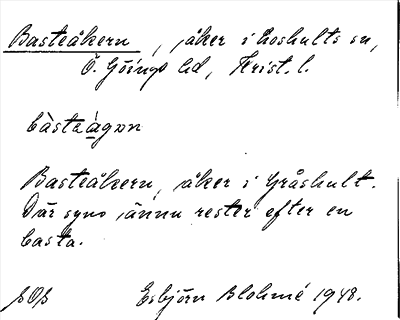 Basteåkern, åker i Loshults sn,
Ö. Göinge hd, Krist. l.
bàstaàgɷn
Basteåkern, åker i Gråshult.
Där syns ännu rester efter en
basta.
Esbjörn Blohmé 1948.